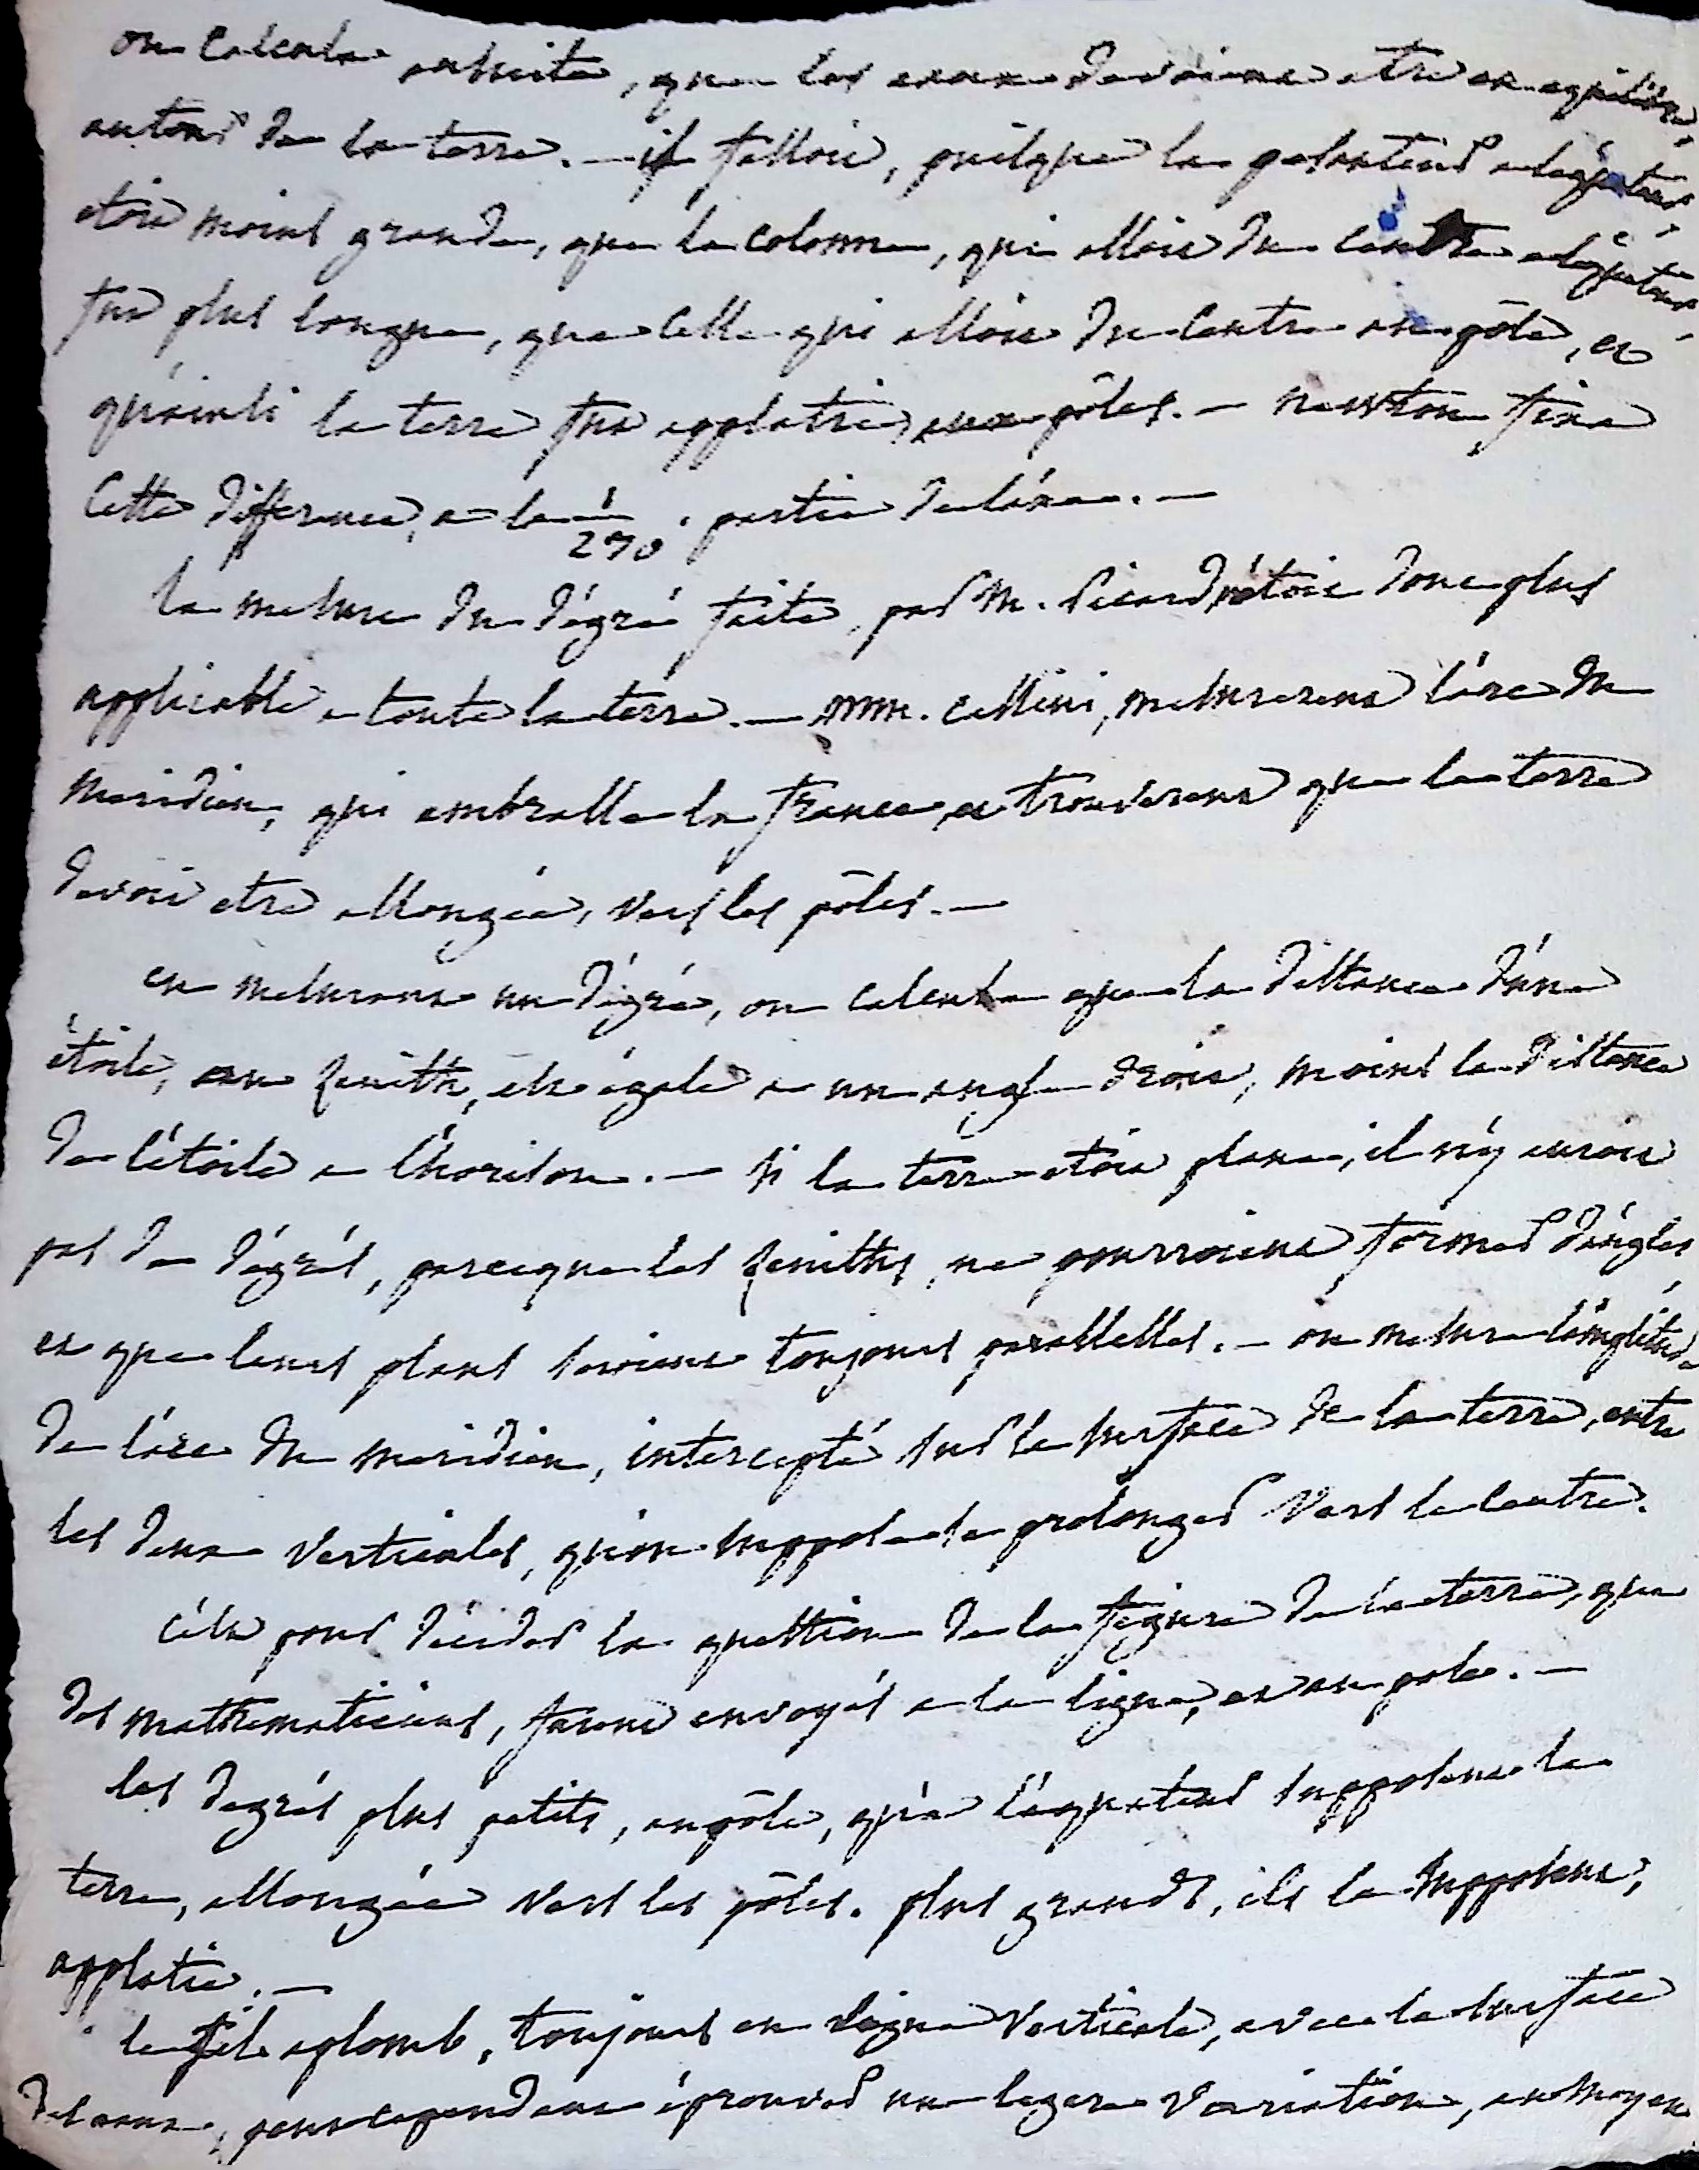 on calcula ensuite, que les eaux devoient etre en equilibre,
autour de la terre. — il falloit, puisque la pesanteur a l'équateur,
étoit moins grande, que la colonne, qui alloit du centre a l'équateur,
fut plus longue, que celle qui alloit du centre au pôle, et
qu'ainsi la terre fut applatie, aux pôles. — newton fixa
cette difference, a la 1/230. partie de l'áxe. —
la mesure du dégré faite, par M. Picard, n'étoit donc plus
applicable a toute la terre. — mm. Cassini, mesurerent l'árc du
meridien, qui embrasse la france, et trouverent que la terre
devoit etre allongée, vers les pôles. —
en mesurant un dégré, on calcula que la distance d'úne
étoile, au zenith, est égale a un angle droit, moins la distance
de l'étoile a l'horison. — si la terre étoit plane, il n'y auroit
pas de dégrés, parceque les zeniths, ne pourroient former d'ángles
et que leurs plans seroient toujours parallelles. — on mesure l'ámplitude
de l'árc du meridien, intercepté sur la surface de la terre, entre
les deux verticales, qu'on suppose se prolonger vers le centre.
c'ést pour décider la question de la figure de la terre, que
des mathematiciens, furent envoyés a la ligne, et au pole. —
les degrés plus petits, au pôle, qu'a l'équateur supposent la
terre, allongée vers les pôles. plus grands, ils la supposent,
applatie. —
le fil aplomb, toujours en ligne verticale, avec la surface
des eaux, peut cependant éprouver une legere variation, au moyen